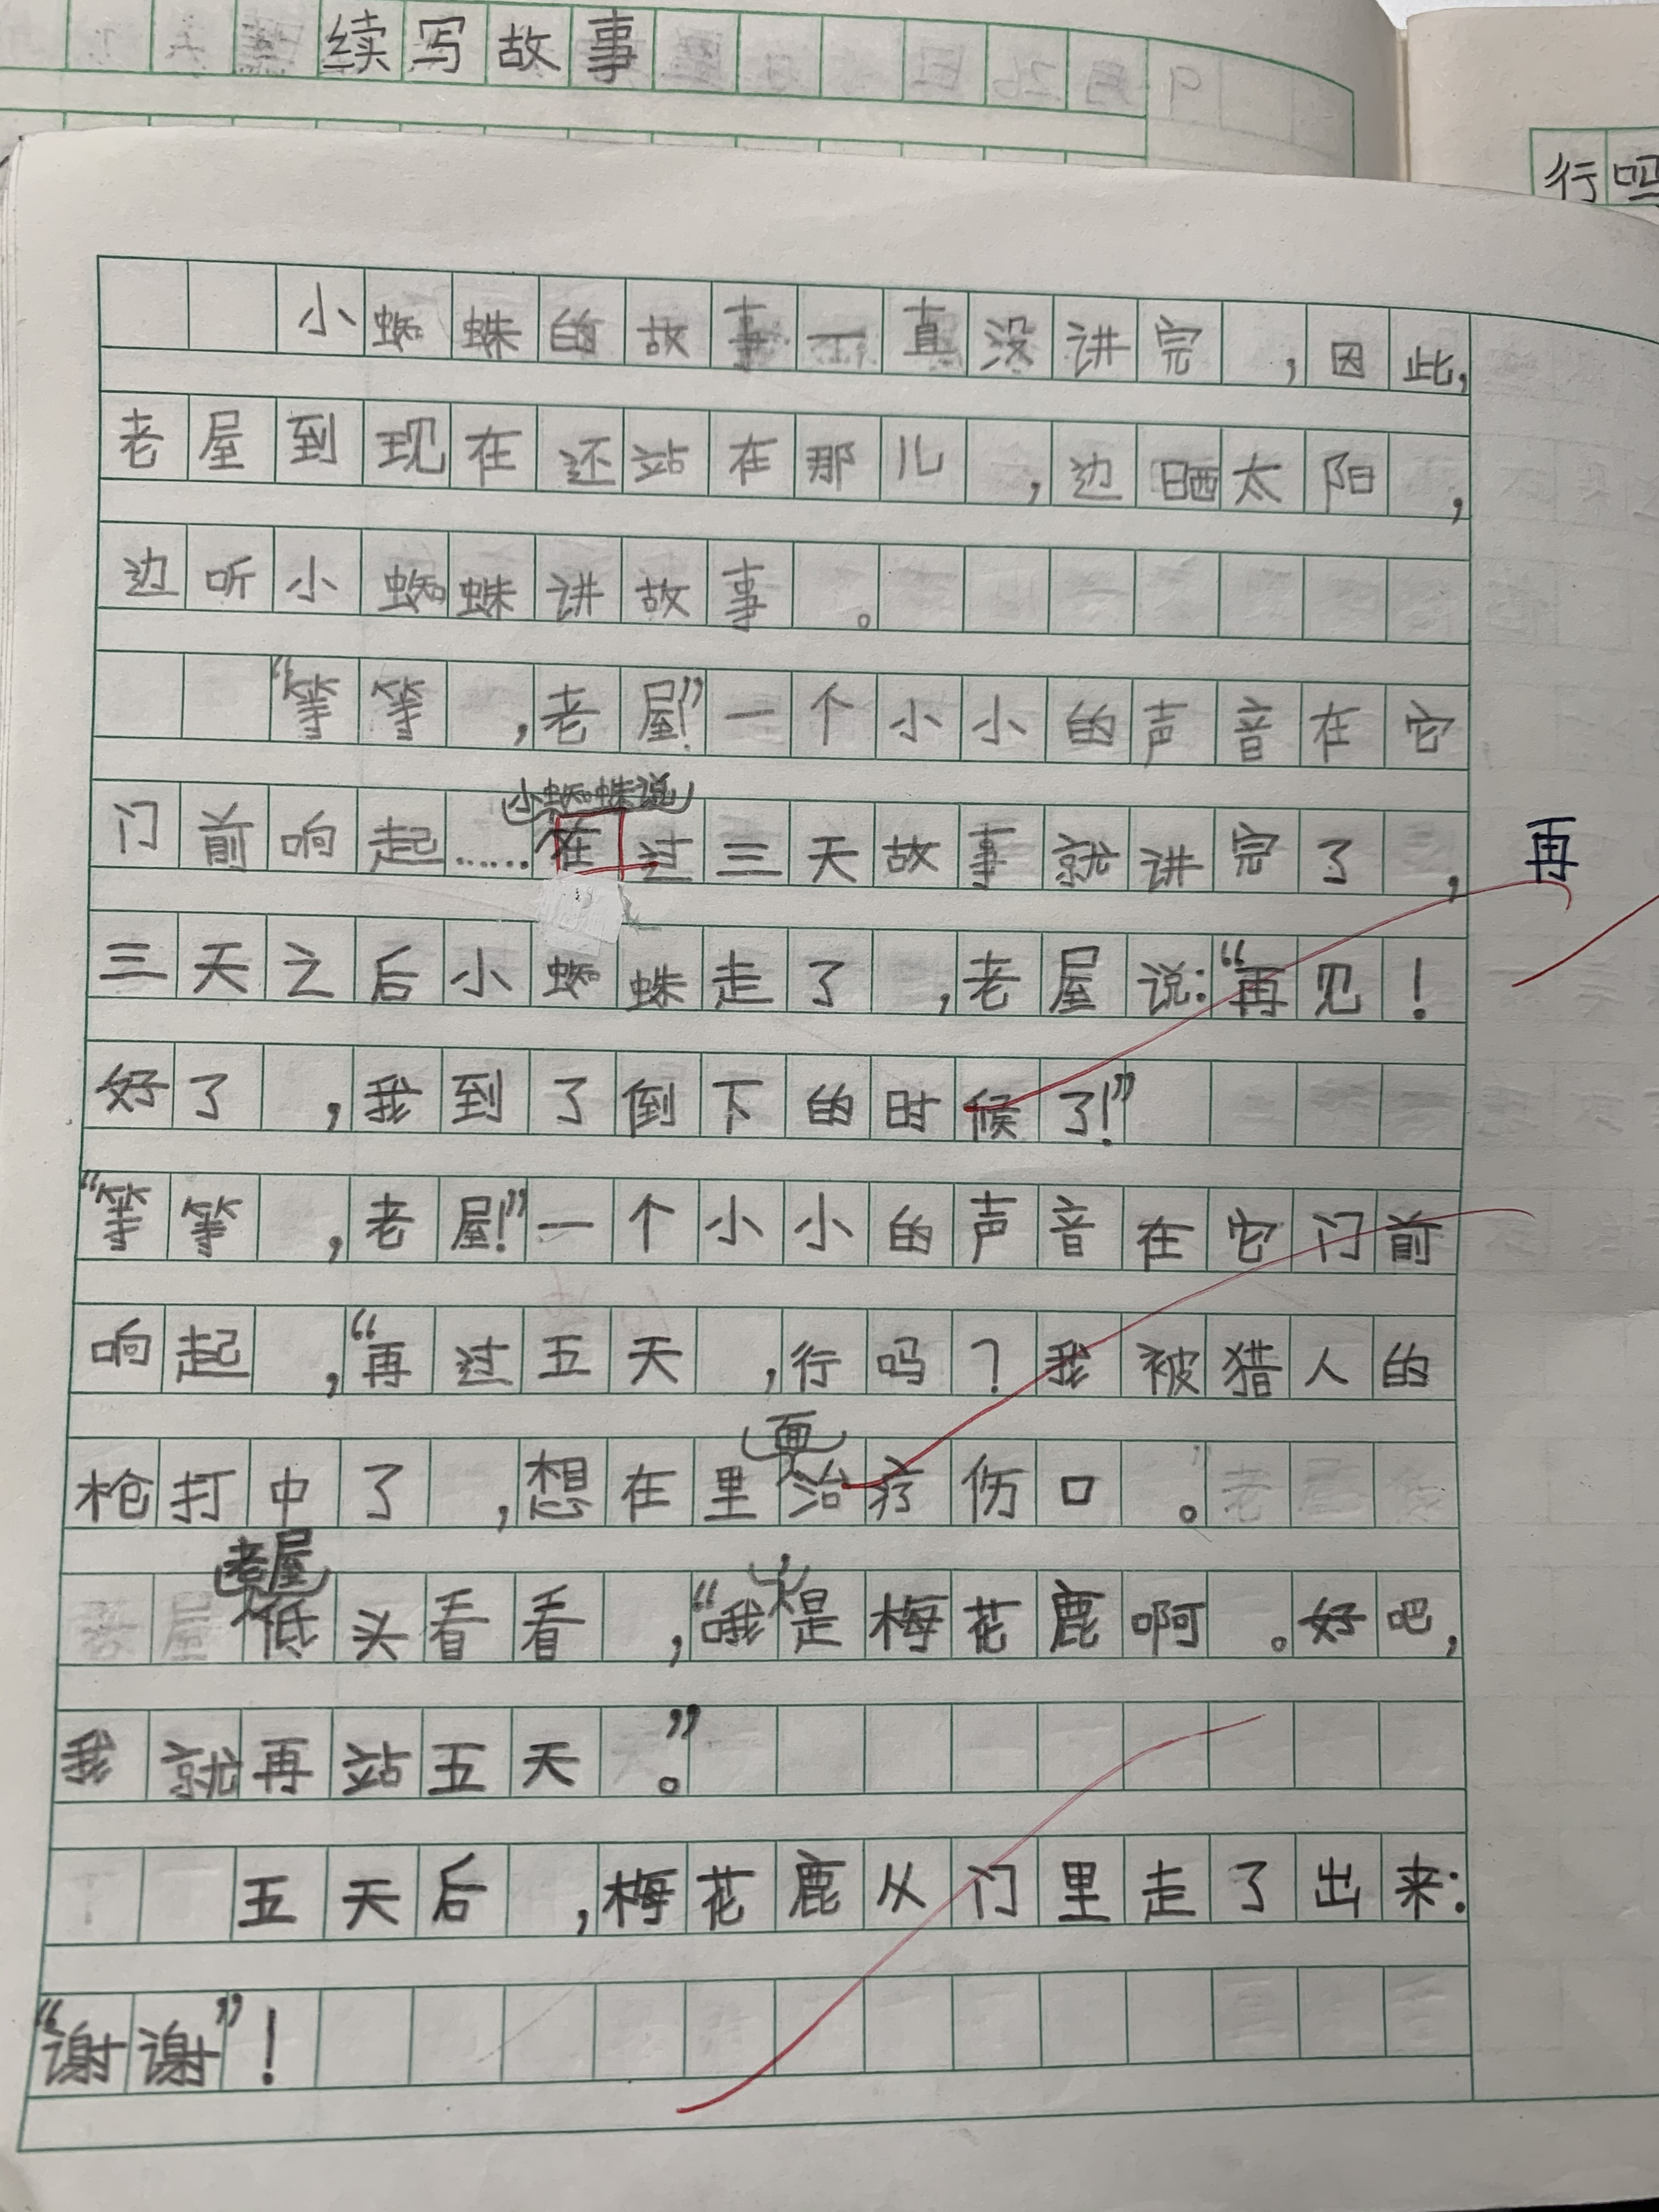 续写故事
行吗
小蜘蛛的故事一直没讲完，因此，
老屋到现在还站在那儿，边晒太阳，
边听小蜘蛛讲故事。
“等等，老屋！”一个小小的声音在它
小蜘蛛说
门前响起……在过三天故事就讲完了，
再
三天之后小蜘蛛走了，老屋说：“再见！
好了，我到了倒下的时候了！”
“等等，老屋！”一个小小的声音在它门前
响起，“再过五天，行吗？我被猎人的
面
枪打中了，想在里治疗伤口。
老屋
低头看看，“哦，是梅花鹿啊。好吧，
我就再站五天。”
五天后，梅花鹿从门里走了出来：
“谢谢”！